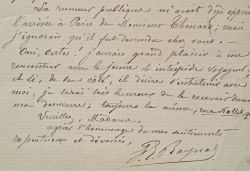 La rumeur publique m'avait déjà appris
l'arrivée à Paris de Monsieur ; mais
j'ignorais qu'il fut descendu chez vous. —
Oui, certes ! j'aurais grand plaisir à me
rencontrer avec le jeune et intrépide voyageur,
et si, de son côté, il désire s'entretenir avec
moi, je serai très heureux de le recevoir dans
ma demeure ; toujours la même, rue
Veuillez, Madame,
agréer l'hommage de mes sentiments
respectueux et dévoués,